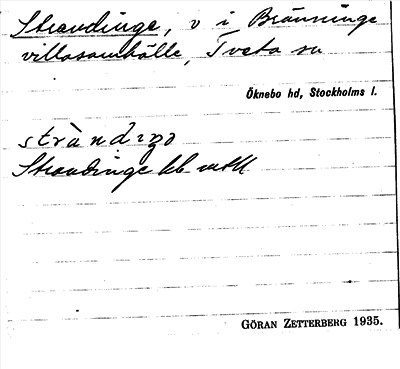 Strandinge, v i Bränninge
villasamhälle, Tveta sn
Öknebo hd, Stockholms l.
strànd.ɪŋə
Strandinge
GÖRAN ZETTERBERG 1935.